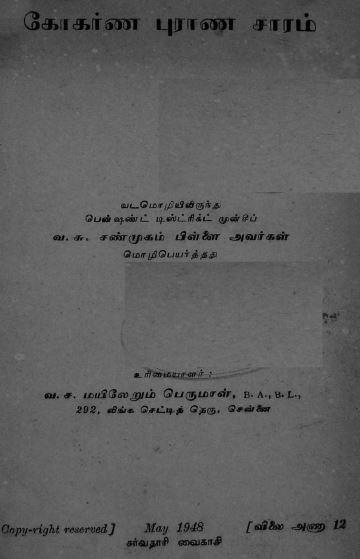 கோகர்ண புராண சாரம்
வடமொழியிலிருந்து
பென்ஷண்ட் டிஸ்ட்ரிக்ட் முன்சீப்
வ. சு. சண்முகம் பிள்ளை அவர்கள்
மொழிபெயர்த்தது
உரிமையாளர் :
வ. ச. மயிலேறும் பெருமாள், B. A., B. L.,
292, லிங்க செட்டித் தெரு, சென்னை
Copy-right reserved ] May 1948 [ விலை அணா 12
சர்வதாரி வைகாசி